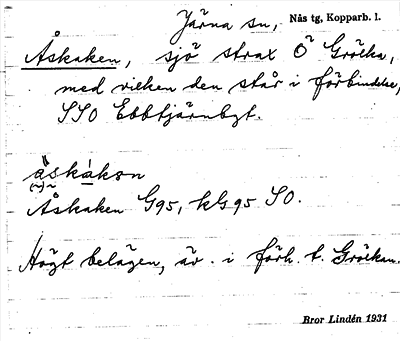 Järna sn, Nås tg, Kopparb. l.
Åskaken, sjö strax Ö Gröcka,
med vilken den står i förbindelse,
SSO Ebbtjärnbgt.
åskàkǝn
Åskaken G95, kbG95 SO.
Högt belägen, äv. i förh. t. Gröckan.
Bror Lindén 1931